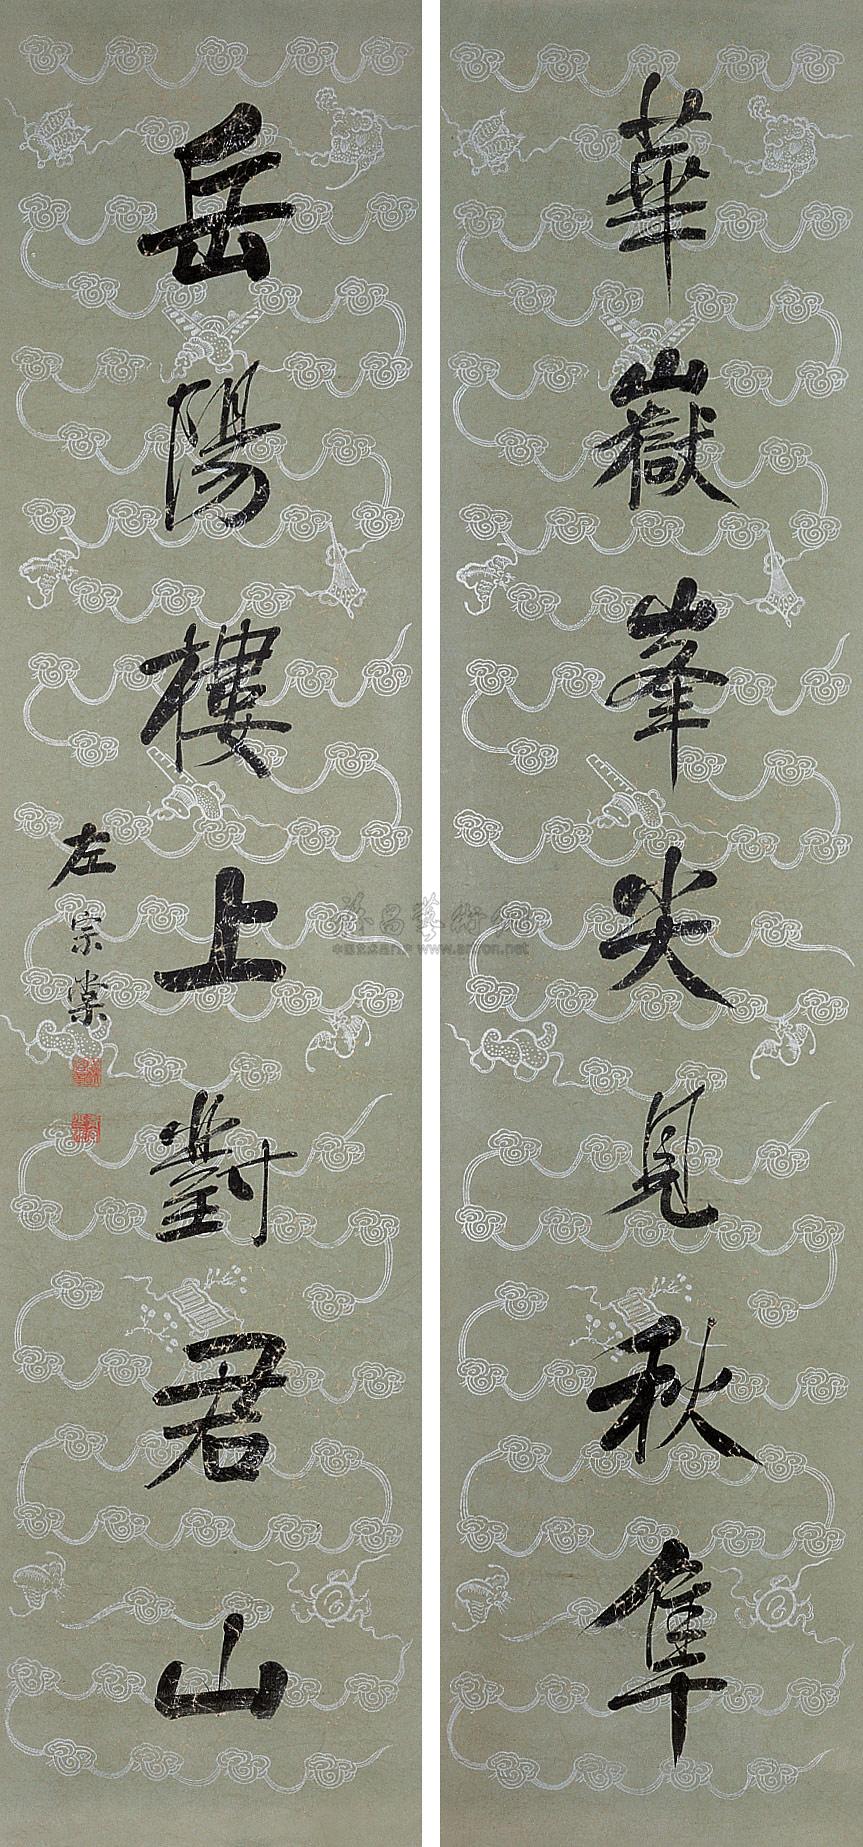 華嶽峯尖見秋隼
岳陽樓上對君山
左宗棠
www.artron.net